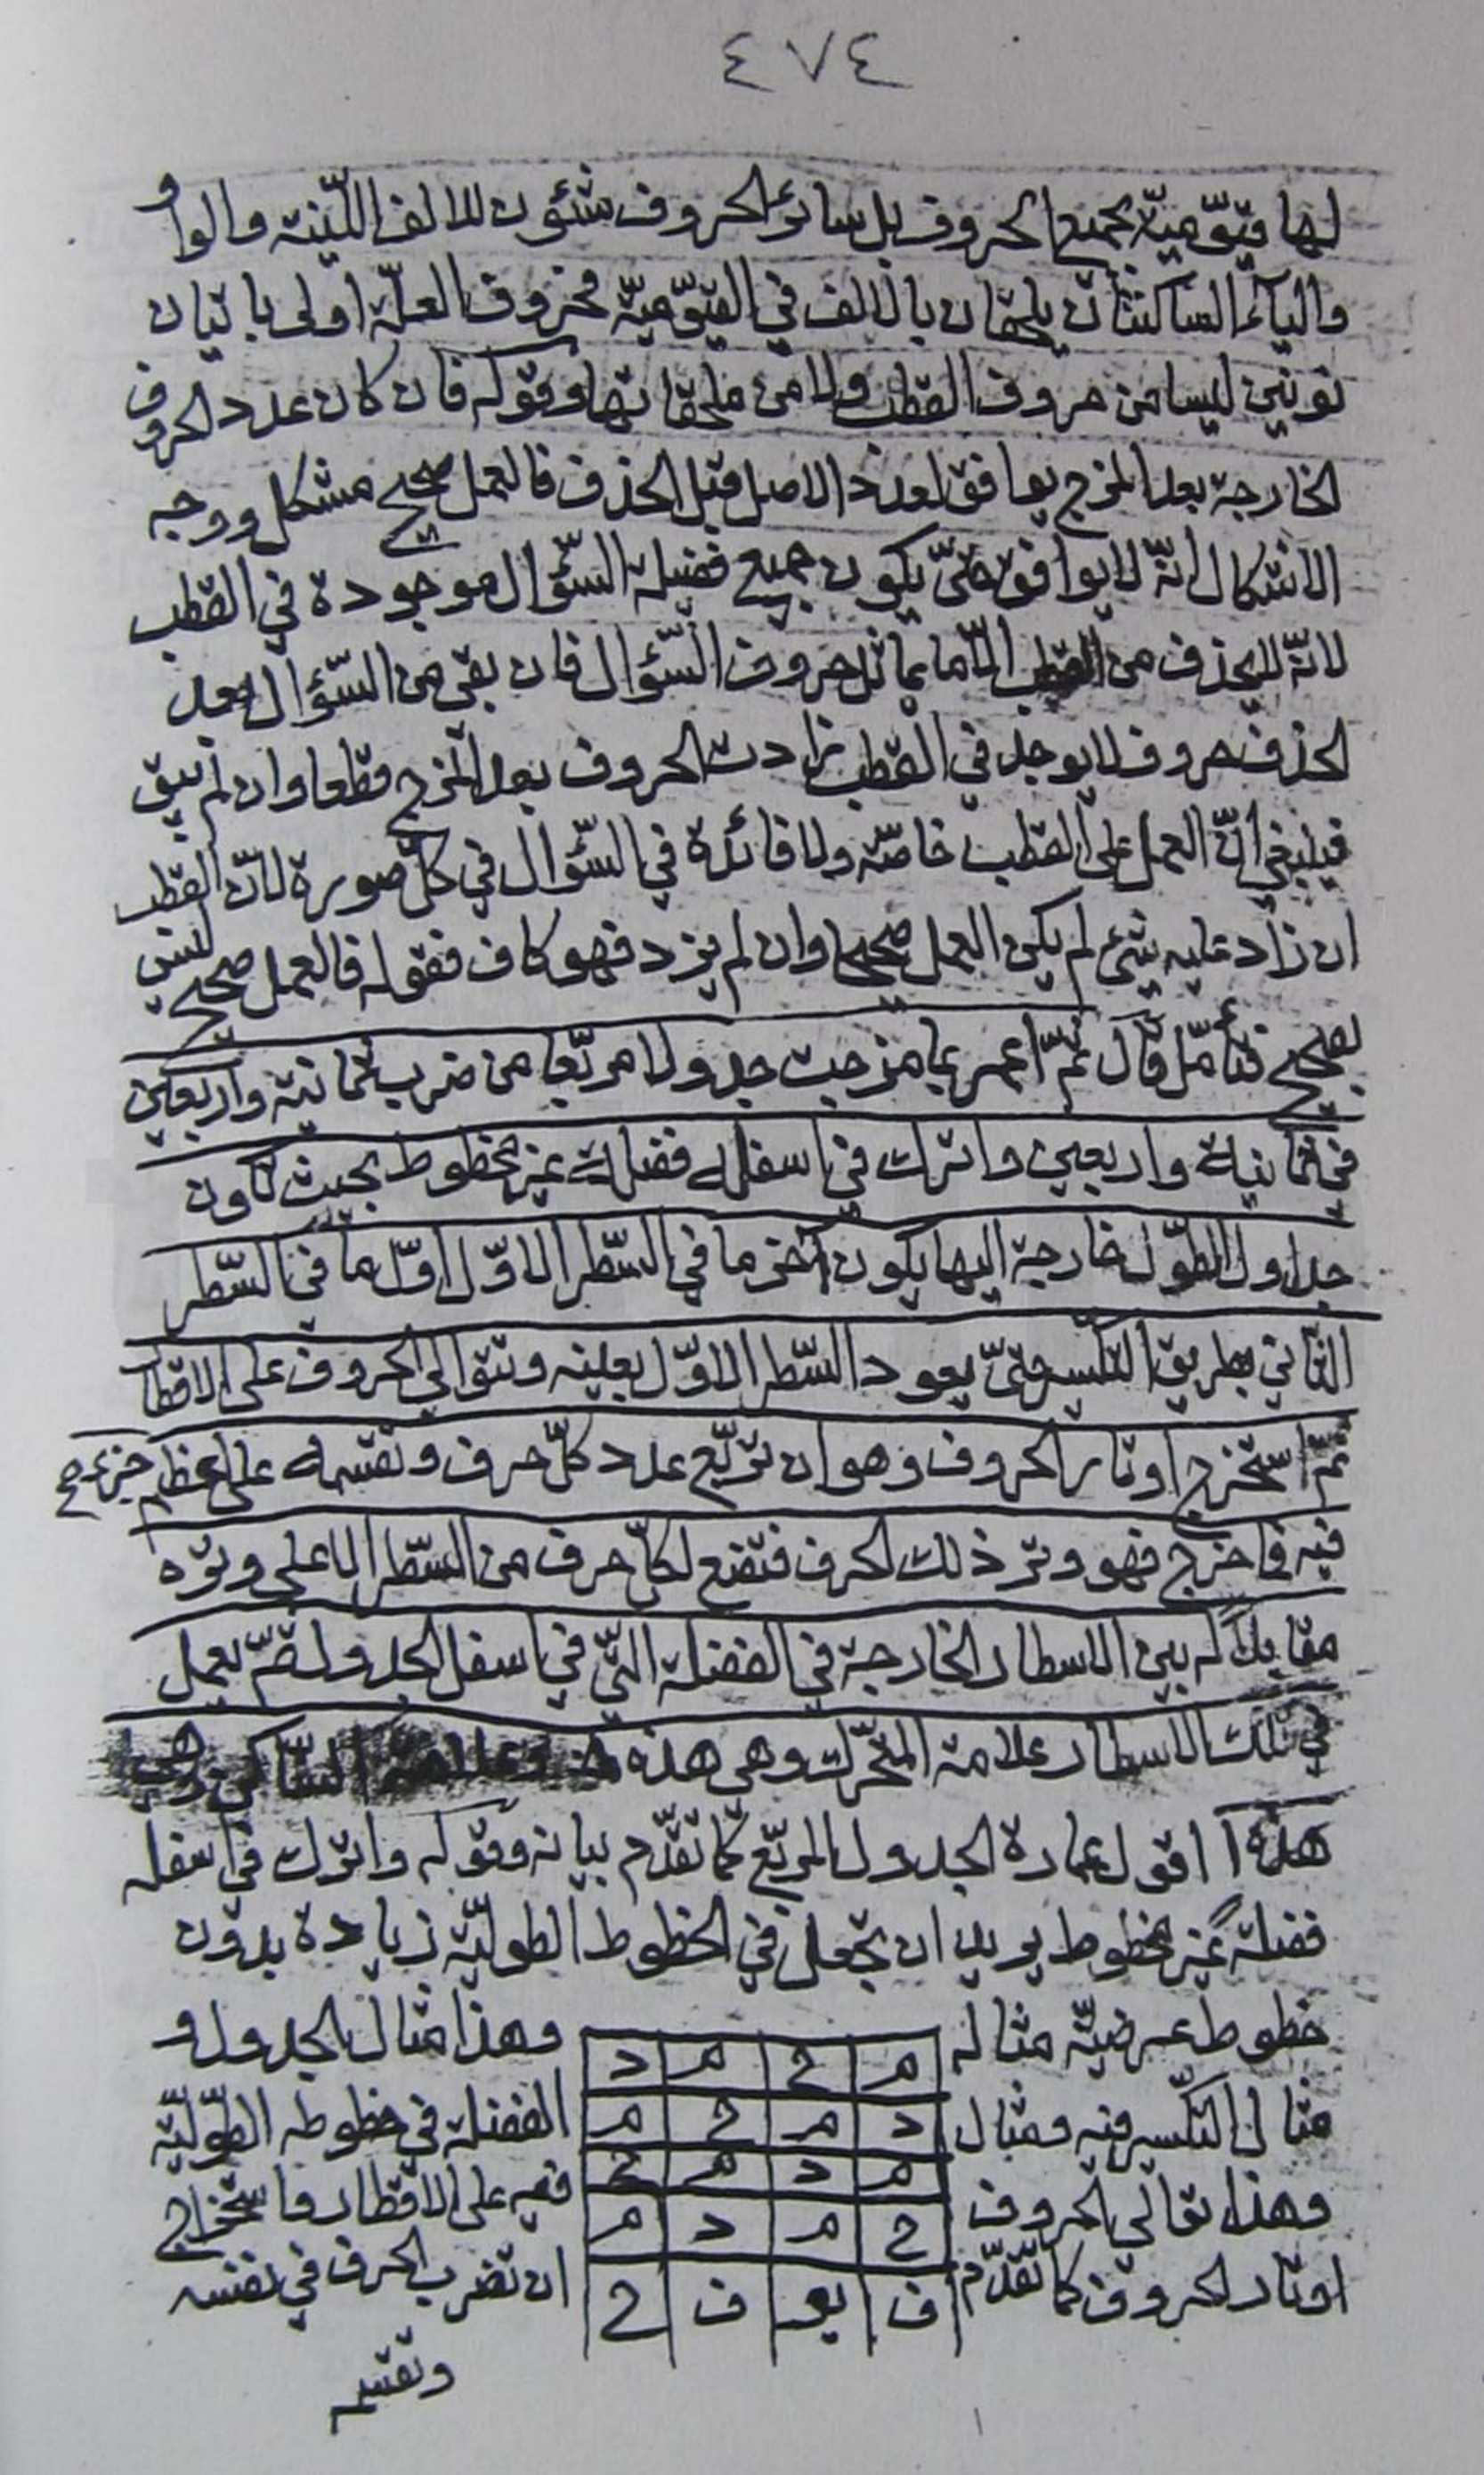 ٤٧٤
لها قيّوميّة بجميع الحروف بل سائر الحروف شئون للالف اللّينة والواو
والياء الساكنتان يلحقان بالالف في القيّوميّة فحروف العلّة اولى باتيان
نونين ليسا من حروف القطب ولا من ملحقاتها وقوله فان كان عدد الحروف
الخارجة بعد المزج يوافق لعدد الاصل قبل الحذف فالعمل صحيح مشكل ووجه
الاشكال انّه لا يوافق حتّى يكون جميع فضيلة السّؤال موجودة في القطب
لانّه لا يحذف من القطب الّا ما يماثل حروف السّؤال فان بقي من السّؤال بعد
الحذف حروف لا يوجد في القطب زادت الحروف بعد المزج قطعا وان لم تبق
فينبغي انّ العمل على القطب خاصّة ولا فائدة في السّؤال في كلّ صورة لانّ القطب
ان زاد عليه شيء لم يكن العمل صحيحا وان لم يزد فهو كاف فقوله فالعمل صحيح ليس
بصحيح فتأمّل قال ثمّ اعمر بما مزجت جدولا مربّعا من ضرب ثمانية واربعين
في ثمانية واربعين واترك في اسفله فضلة غير مخطوط بحيث تكون
جداول الطّول خارجة اليها يكون آخر ما في السّطر الاوّل اوّل ما في السّطر
الثاني بطريق التكسير حتّى يعود السّطر الاوّل بعينه وتتوالى الحروف على الاقطار
ثمّ استخرج اوتار الحروف وهو ان تربّع عدد كلّ حرف وتقسمه على اعظم جزء صح
فيه فما خرج فهو وتر ذلك الحرف فتضع لكلّ حرف من السّطر الاعلى وتره
مقابلا له بين الاسطار الخارجة في الفضلة التّي في اسفل الجدول ثمّ يعمل
في تلك الاسطار علامة المتحرّك وهي هذه وعلامة السّاكن وهي
هذه ا اقول عمارة الجدول المربّع كما تقدّم بيانه وقوله واترك في اسفله
فضلة غير مخطوط يريد ان تجعل في الخطوط الطوليّة زيادة بدون
خطوط عرضيّة مثاله
م ح م د
وهذا مثال الجدول و
مثال التكسير فيه ومثال
د م ح م
الفضلة في خطوطه الطّوليّة
وهذا توالى الحروف
م د م ح
فيه على الاقطار واستخراج
ح م د م
اوتار الحروف كما تقدّم
ف يو ف ح
ان تضرب الحرف في نفسه
وتقسم